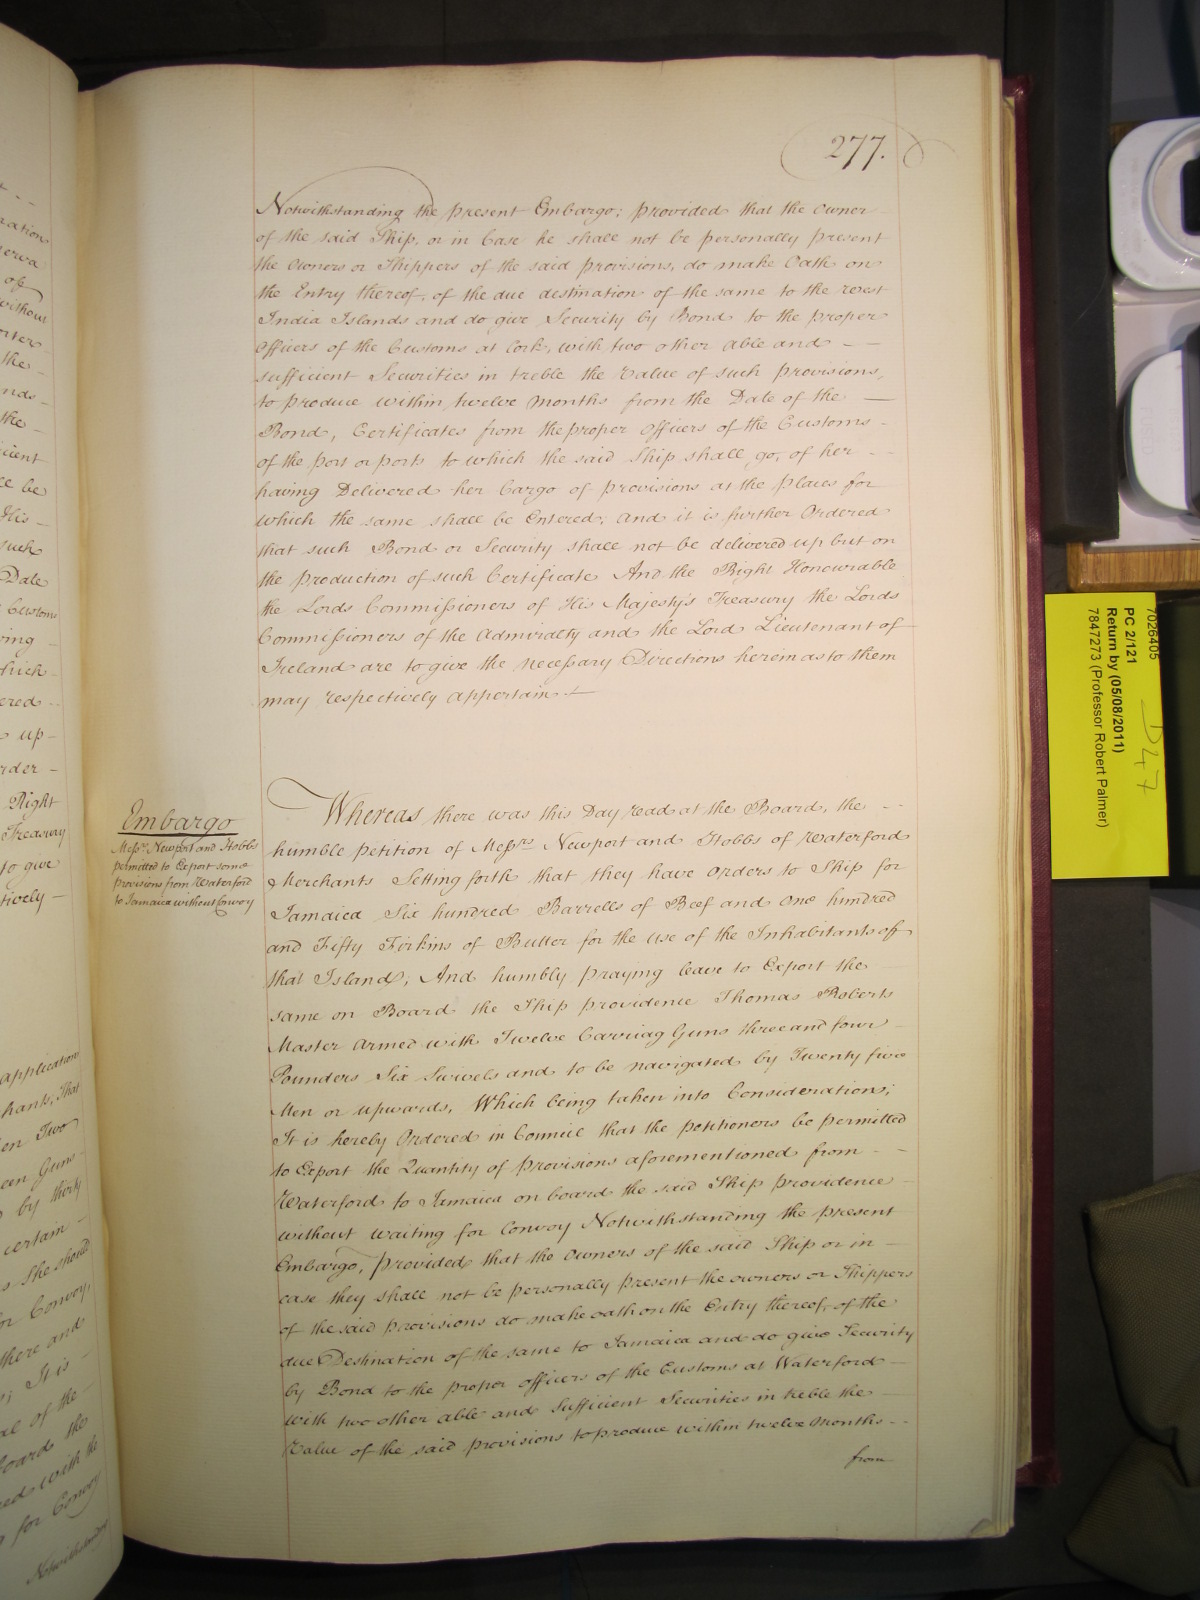 277.
Notwithstanding the present Embargo; provided that the Owner
of the said Ship, or in Case he shall not be personally present
the Owners or Shippers of the said provisions, do make Oath on
the Entry thereof, of the due destination of the same to the West
India Islands and do give Security by Bond to the proper
Officers of the Customs at Cork, with two other able and
sufficient Securities in treble the Value of such provisions,
to produce within twelve Months from the Date of the
Bond, Certificates from the proper Officers of the Customs
of the port or ports to which the said Ship shall go, of her
having Delivered her Cargo of provisions at the places for
which the same shall be Entered; and it is further Ordered
that such Bond or Security shall not be delivered up but on
the production of such Certificate And the Right Honourable
the Lords Commissioners of His Majesty's Treasury the Lords
Commissioners of the Admiralty and the Lord Lieutenant of
Ireland are to give the necessary Directions herein as to them
may respectively appertain
Embargo
Messrs. Newport and Hobbs
permitted to Export some
provisions from Waterford
to Jamaica without Convoy
Whereas there was this Day read at the Board, the
humble petition of Messrs Newport and Hobbs of Waterford
Merchants Setting forth that they have orders to Ship for
Jamaica Six hundred Barrells of Beef and One hundred
and Fifty Firkins of Butter for the use of the Inhabitants of
that Island; And humbly praying leave to Export the
same on Board the Ship providence Thomas Roberts
Master armed with Twelve Carriag Guns three and four
Pounders Six Swivels and to be navigated by Twenty five
Men or upwards, Which being taken into Considerations;
It is hereby Ordered in Council that the petitioners be permitted
to Export the Quantity of provisions aforementioned from
Waterford to Jamaica on board the said Ship providence
without waiting for Convoy Notwithstanding the present
Embargo, provided that the Owners of the said Ship or in
case they shall not be personally present the owners or Shippers
of the said provisions do make oath on the Entry thereof, of the
due Destination of the same to Jamaica and do give Security
by Bond to the proper officers of the Customs at Waterford
with two other able and Sufficient Securities in treble the
Value of the said provisions to produce within twelve months
from
7026405
PC 2/121
Return by (05/08/2011)
7847273 (Professor Robert Palmer)
D47